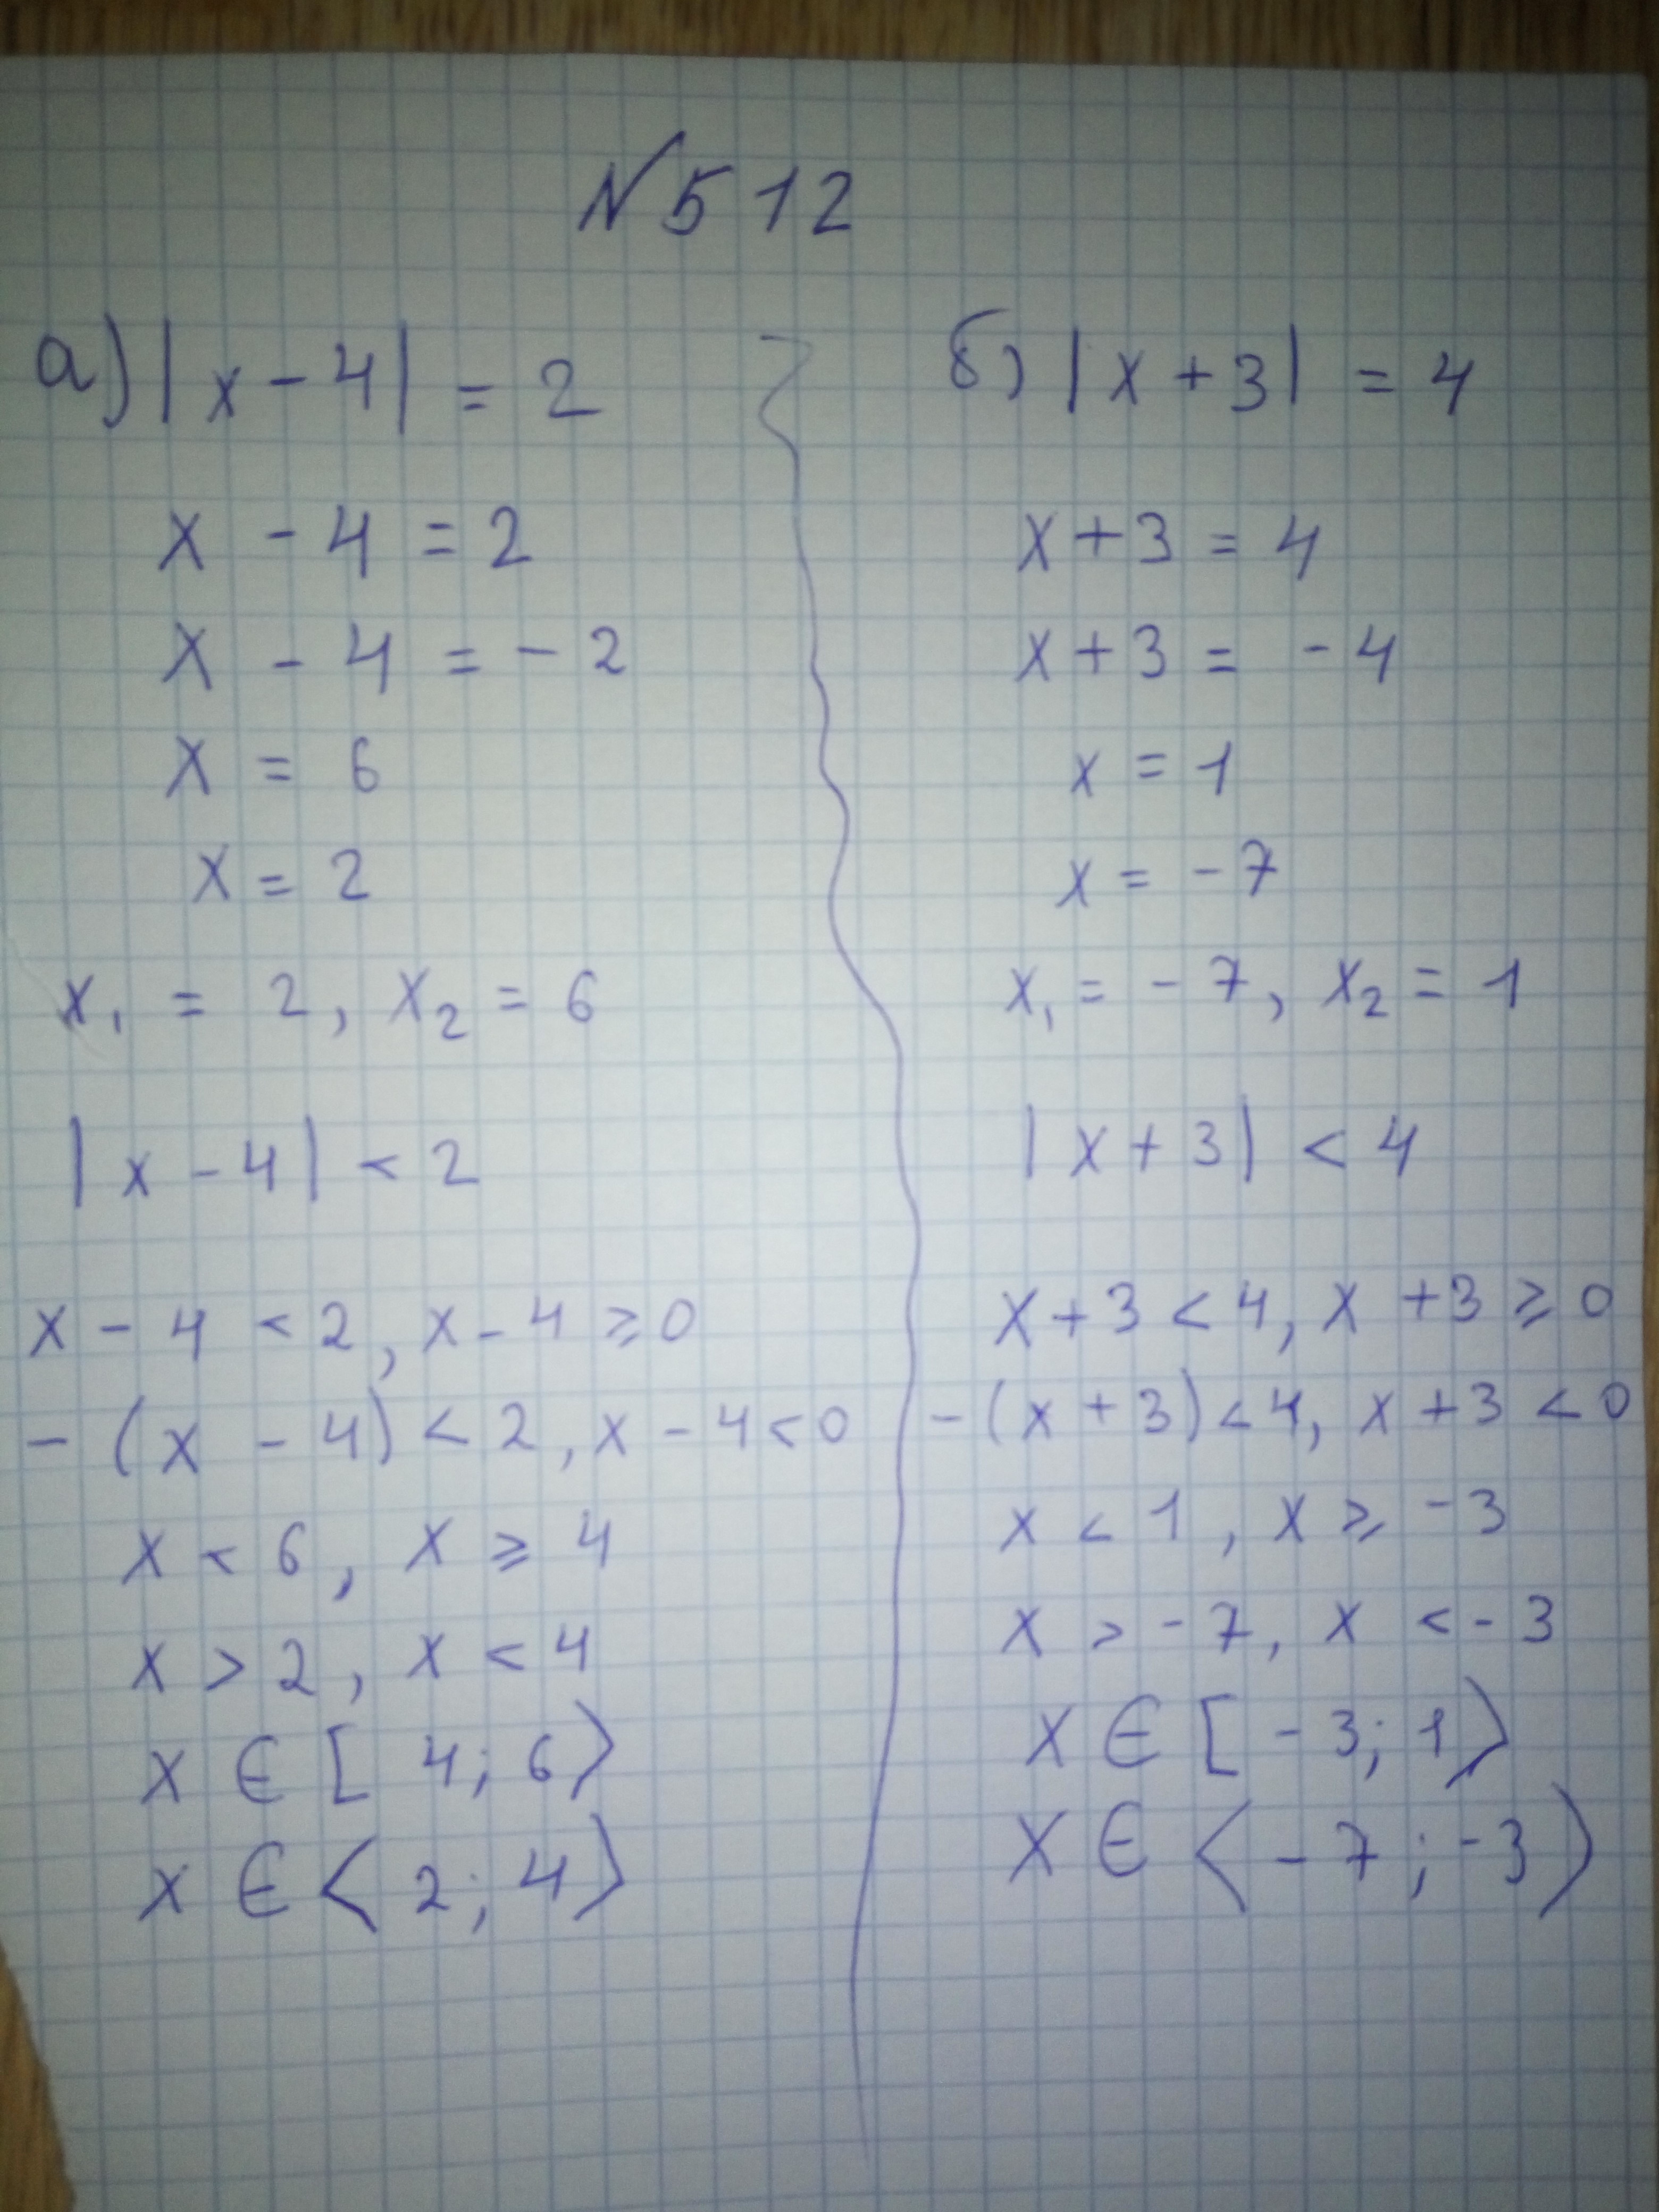 № 512
а) |x - 4| = 2
x - 4 = 2
x - 4 = - 2
x = 6
x = 2
x₁ = 2, x₂ = 6
|x - 4| < 2
x - 4 < 2, x - 4 ⩾ 0
- (x - 4) < 2, x - 4 < 0
x < 6, x ⩾ 4
x > 2, x < 4
x ∈ [4; 6⟩
x ∈ ⟨2; 4⟩
б) |x + 3| = 4
x + 3 = 4
x + 3 = - 4
x = 1
x = - 7
x₁ = - 7, x₂ = 1
|x + 3| < 4
x + 3 < 4, x + 3 ⩾ 0
- (x + 3) < 4, x + 3 < 0
x < 1, x ⩾ - 3
x > - 7, x < - 3
x ∈ [- 3; 1⟩
x ∈ ⟨- 7; - 3⟩